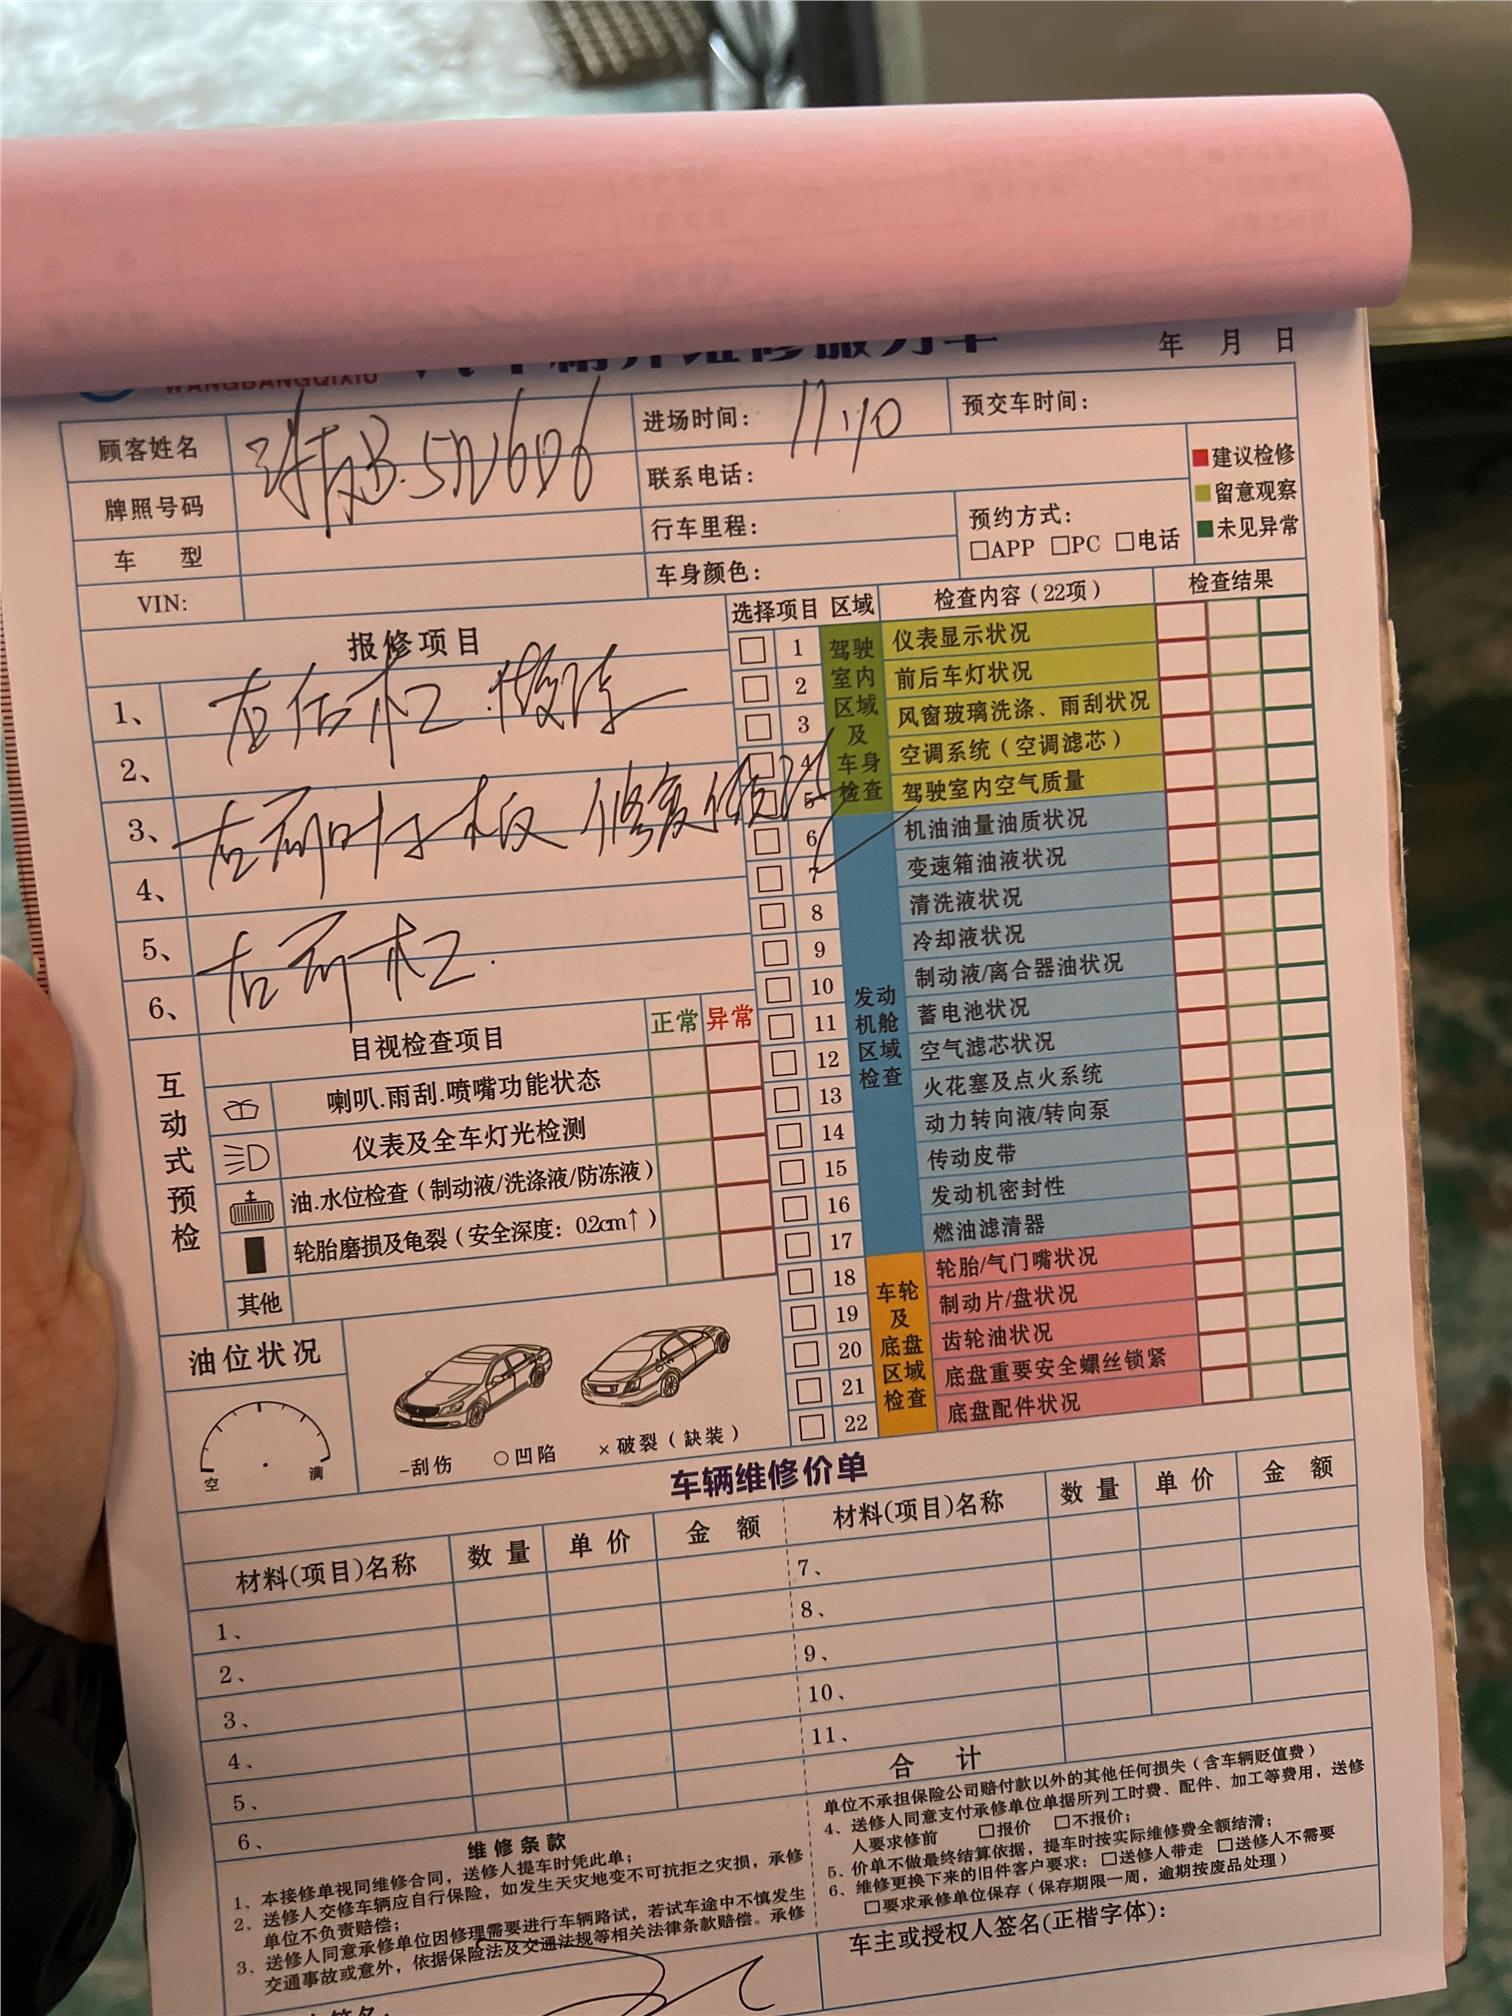 WANGBANGQIXIU
年 月 日
顾客姓名
进场时间:
预交车时间:
牌照号码
联系电话:
车 型
行车里程:
预约方式:
□APP □PC □电话
VIN:
车身颜色:
建议检修
留意观察
未见异常
报修项目
1、
2、
3、
4、
5、
6、
左前杠.
选择项目 区域 检查内容(22项) 检查结果
驾驶室内区域及车身检查
1 仪表显示状况
2 前后车灯状况
3 风窗玻璃洗涤、雨刮状况
4 空调系统(空调滤芯)
5 驾驶室内空气质量
发动机舱区域检查
6 机油油量油质状况
7 变速箱油液状况
8 清洗液状况
9 冷却液状况
10 制动液/离合器油状况
11 蓄电池状况
12 空气滤芯状况
13 火花塞及点火系统
14 动力转向液/转向泵
15 传动皮带
16 发动机密封性
17 燃油滤清器
车轮及底盘区域检查
18 轮胎/气门嘴状况
19 制动片/盘状况
20 齿轮油状况
21 底盘重要安全螺丝锁紧
22 底盘配件状况
互动式预检
目视检查项目 正常 异常
喇叭.雨刮.喷嘴功能状态
仪表及全车灯光检测
油.水位检查(制动液/洗涤液/防冻液)
轮胎磨损及龟裂(安全深度:0.2cm↑)
其他
油位状况
空 满
-刮伤 ○凹陷 ×破裂(缺装)
车辆维修价单
材料(项目)名称 数量 单价 金额
1、
2、
3、
4、
5、
6、
材料(项目)名称 数量 单价 金额
7、
8、
9、
10、
11、
合 计
维修条款
1、本接修单视同维修合同,送修人提车时凭此单;
2、送修人交修车辆应自行保险,如发生天灾地变不可抗拒之灾损,承修
单位不负责赔偿;
3、送修人同意承修单位因修理需要进行车辆路试,若试车途中不慎发生
交通事故或意外,依据保险法及交通法规等相关法律条款赔偿。承修
单位不承担保险公司赔付款以外的其他任何损失(含车辆贬值费)
4、送修人同意支付承修单位单据所列工时费、配件、加工等费用,送修
人要求修前 □报价 □不报价;
5、价单不做最终结算依据,提车时按实际维修费全额结清;
6、维修更换下来的旧件客户要求:□送修人带走 □送修人不需要
□要求承修单位保存(保存期限一周,逾期按废品处理)
车主或授权人签名(正楷字体):